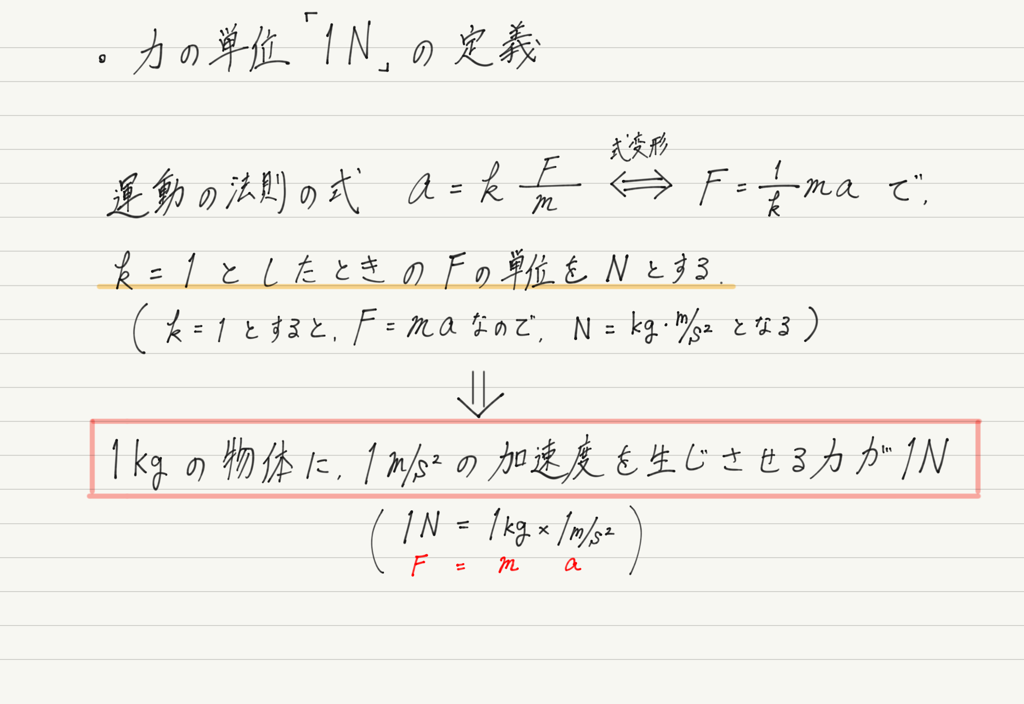 ・力の単位「1N」の定義
式変形
運動の法則の式 a = k F/m ⇔ F = 1/k ma で,
k = 1 としたときの F の単位を N とする.
( k = 1 とすると, F = ma なので, N = kg・m/s² となる )
⇓
1kg の物体に, 1m/s² の加速度を生じさせる力が 1N
( 1N = 1kg × 1m/s² )
F = m a